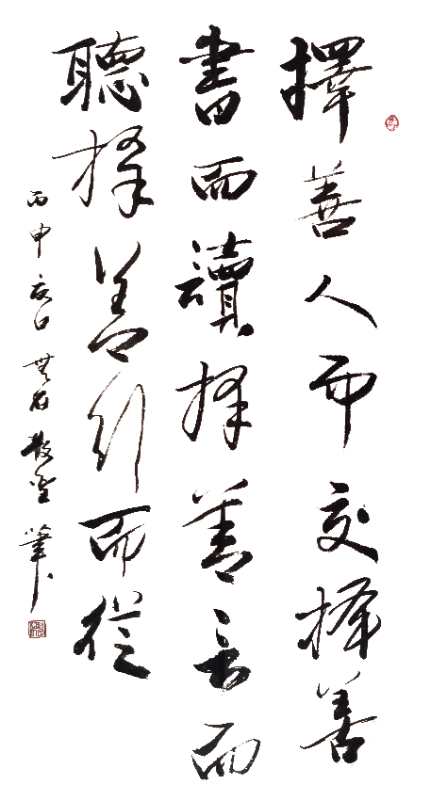 擇善人而交擇善
書而讀擇善言而
聽擇善行而從
丙申秋日